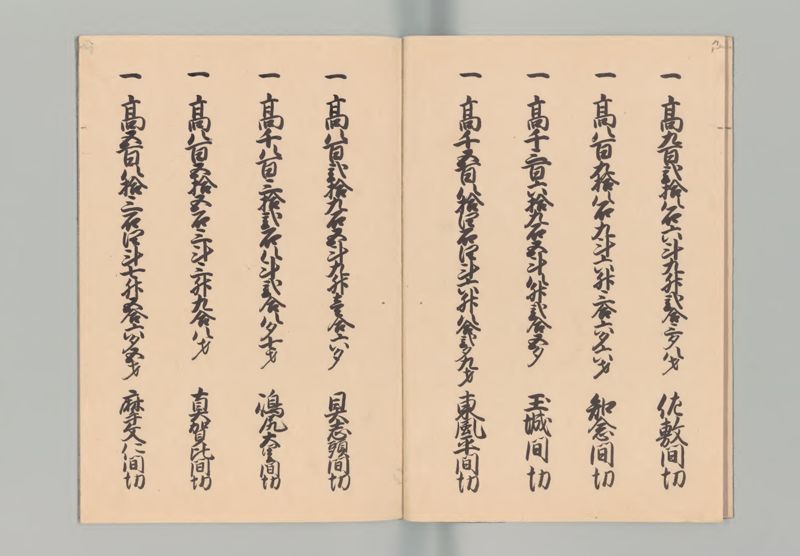 一 高九百弐拾八石六斗九升弐合三夕八才 佐敷間切
一 高八百九拾八石九斗六升三合六夕六才 知念間切
一 高千三百六拾九石五斗八升弐合五夕 玉城間切
一 高千五百八拾四石四斗六升八合弐夕九才 東風平間切
一 高八百弐拾九石五斗九升壱合六夕 具志頭間切
一 高千八百三拾弐石八斗弐合八夕七才 嶋尻大里間切
一 高八百五拾五石三斗三升九合八才 真賀比間切
一 高五百八拾三石四斗七升五合六夕五才 麻文仁間切